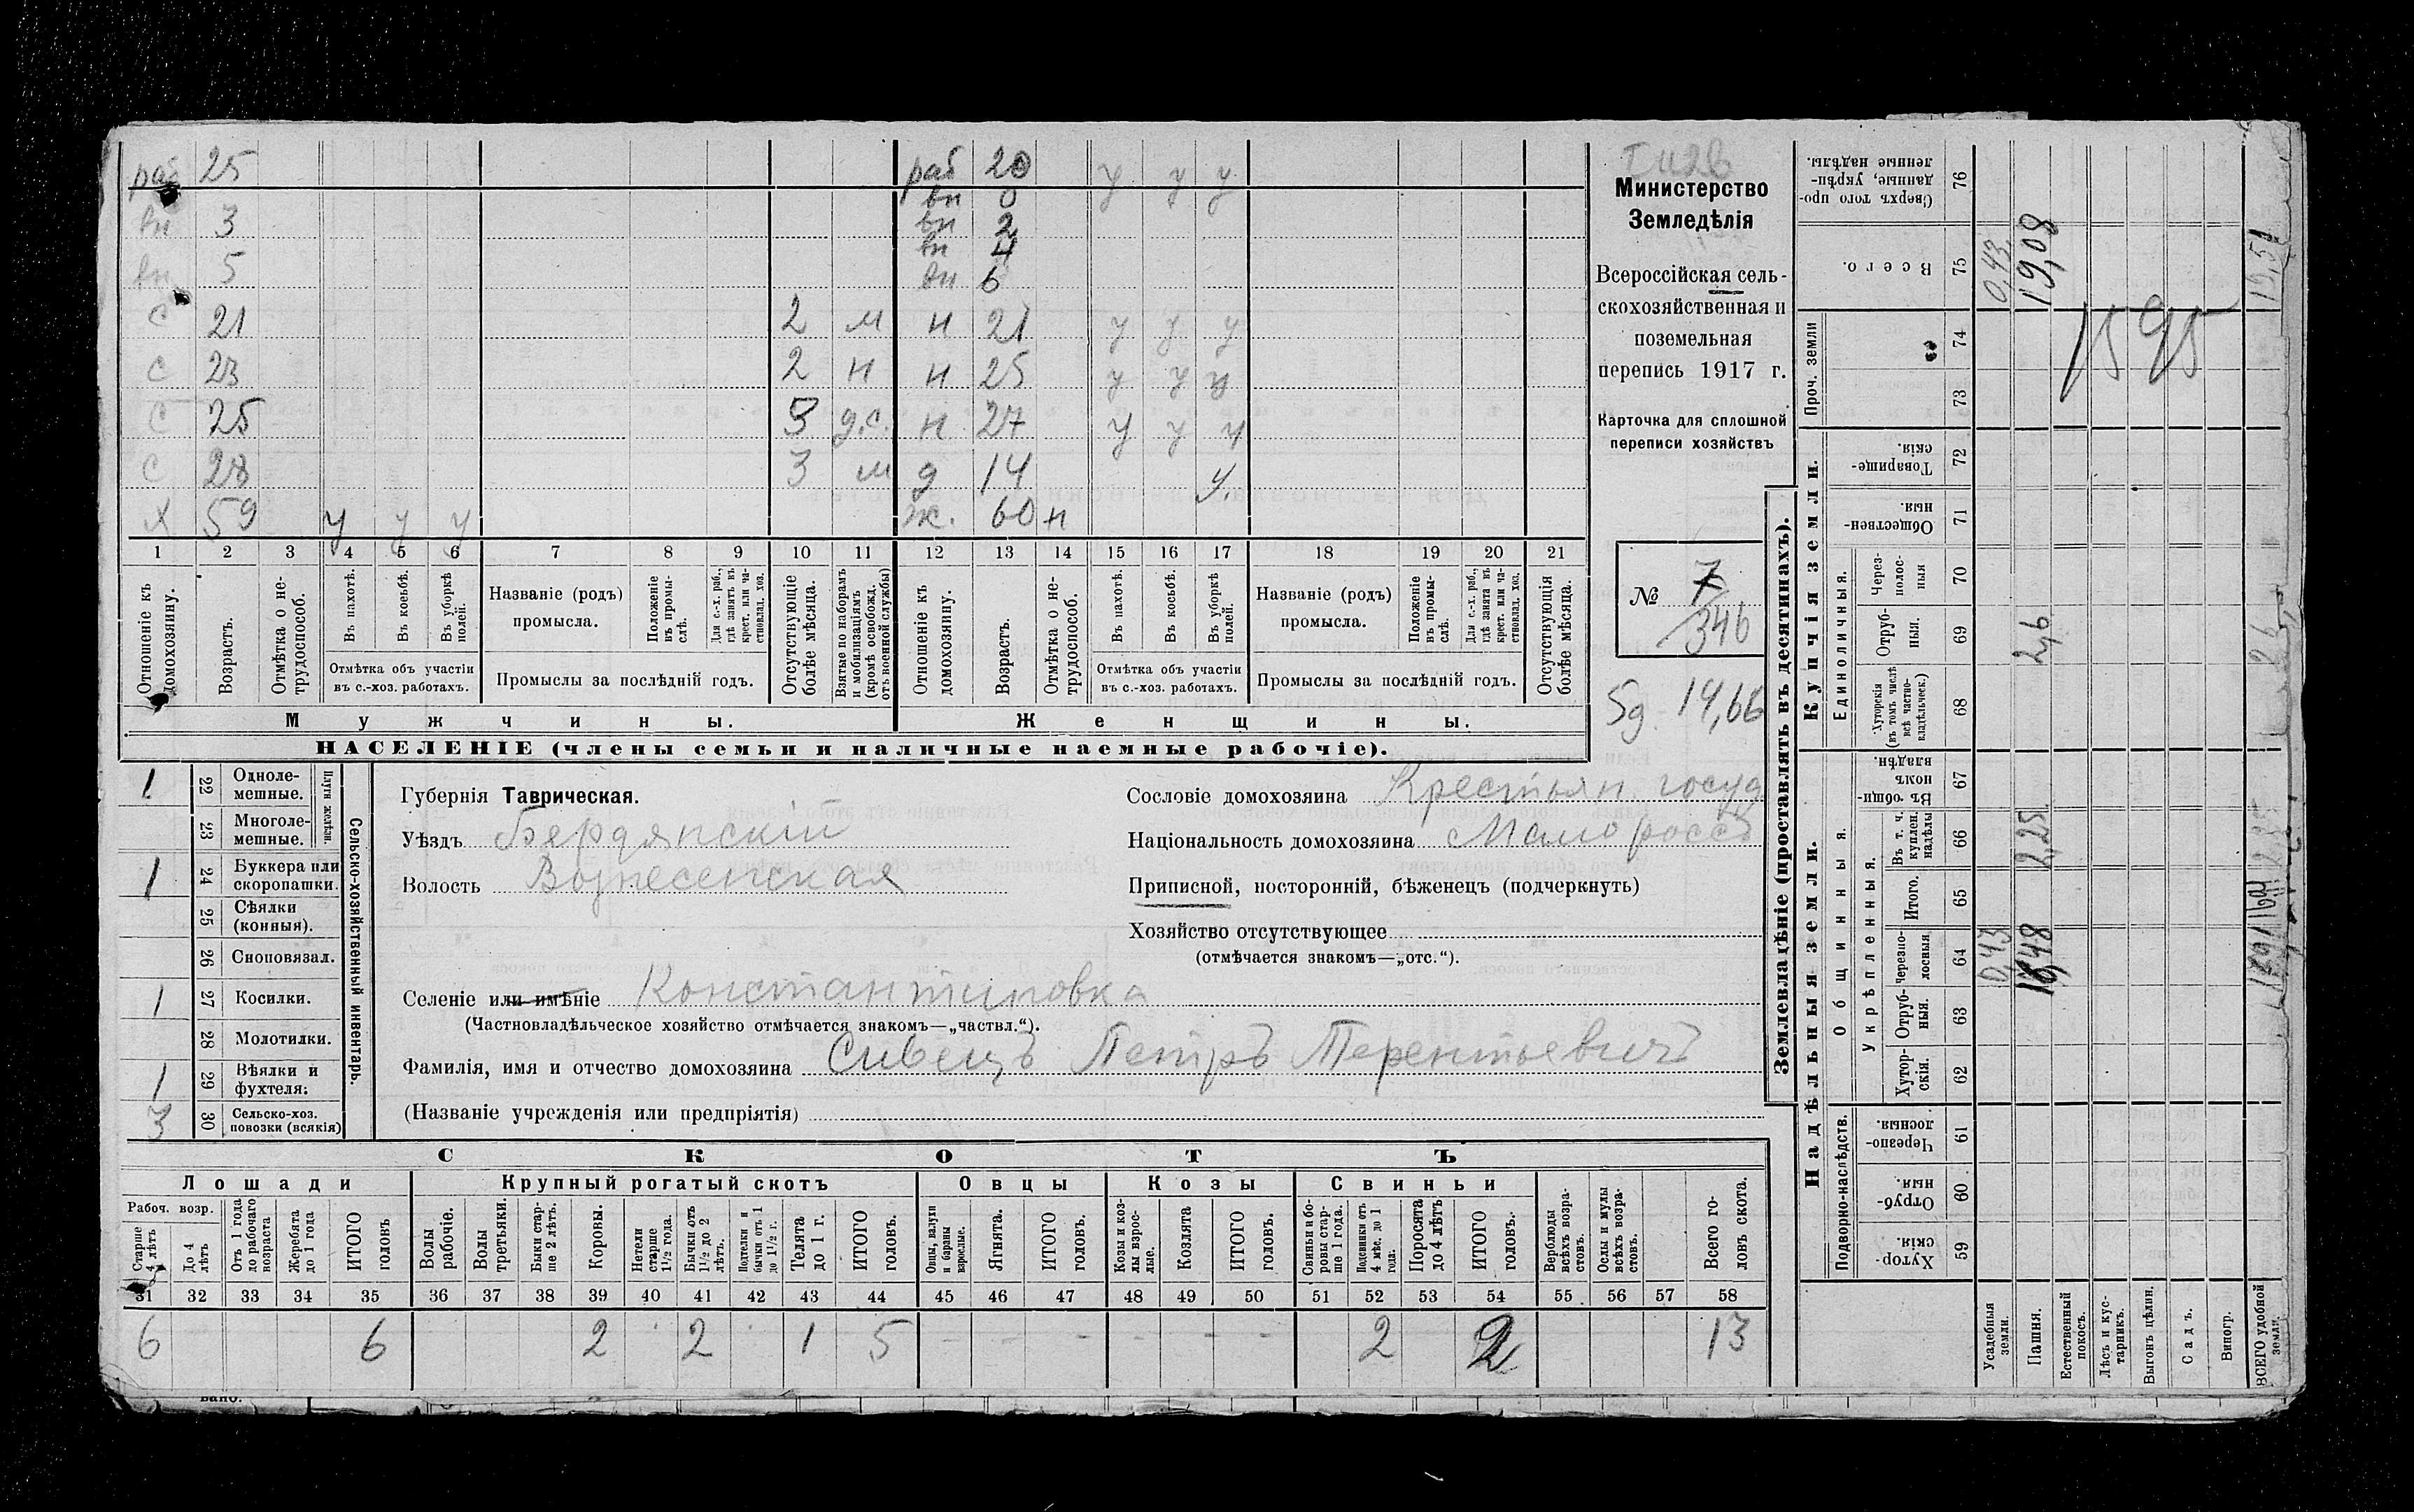 раб 25 раб 20 у у у
вн 0
вн 3 вн 2
вн 4
вн 5 вн 6
с 21 2 м н 21 у у у
с 23 2 н н 25 у у у
с 25 3 д.с. н 27 у у у
с 28 3 м д 14 у.
х 59 у у у ж. 60 н
1 2 3 4 5 6 7 8 9 10 11 12 13 14 15 16 17 18 19 20 21
Отношеніе къ домохозяину.
Возрастъ.
Отмѣтка о не-
трудоспособ.
Въ пахотѣ.
Въ косьбѣ.
Въ уборкѣ
полей.
Отмѣтка объ участіи
въ с.-хоз. работахъ.
Названіе (родъ)
промысла.
Положеніе
въ промы-
слѣ.
Для с.-х. раб.,
гдѣ занятъ въ
крест. или ча-
стновлад. хоз.
Промыслы за послѣдній годъ.
Отсутствующіе
болѣе мѣсяца.
Взятые по наборамъ
и мобилизаціямъ
(кромѣ освобожд.
отъ военной службы)
Отношеніе къ
домохозяину.
Возрастъ.
Отмѣтка о не-
трудоспособ.
Въ пахотѣ.
Въ косьбѣ.
Въ уборкѣ
полей.
Отмѣтка объ участіи
въ с.-хоз. работахъ.
Названіе (родъ)
промысла.
Положеніе
въ промы-
слѣ.
Для с.-х. раб.,
гдѣ занята въ
крест. или ча-
стновлад. хоз.
Промыслы за послѣдній годъ.
Отсутствующія
болѣе мѣсяца.
Мужчины. Женщины.
НАСЕЛЕНІЕ (члены семьи и наличные наемные рабочіе).
Министерство
Земледѣлія
Всероссійская сель-
скохозяйственная и
поземельная
перепись 1917 г.
Карточка для сплошной
переписи хозяйствъ
№ 7
346
5д. 14,66
1 22 Одноле-
мешные.
23 Многоле-
мешные.
Плуги желѣзн.
1 24 Буккера или
скоропашки.
25 Сѣялки
(конныя).
26 Сноповязал.
1 27 Косилки.
28 Молотилки.
1 29 Вѣялки и
фухтеля.
3 30 Сельско-хоз.
повозки (всякія)
Сельско-хозяйственный инвентарь.
Губернія Таврическая.
Уѣздъ Бердянскій
Волость Вознесенская
Селеніе или имѣніе Константиновка
(Частновладѣльческое хозяйство отмѣчается знакомъ—„частвл.“).
Фамилія, имя и отчество домохозяина Сивецъ Петръ Терентьевичъ
(Названіе учрежденія или предпріятія)
Сословіе домохозяина Крестьян. госуд
Національность домохозяина Малороссъ
Приписной, посторонній, бѣженецъ (подчеркнуть)
Хозяйство отсутствующее
(отмѣчается знакомъ—„отс.“).
СКОТЪ
Лошади Крупный рогатый скотъ Овцы Козы Свиньи
Рабоч. возр.
Старше
4 лѣтъ
До 4
лѣтъ
Отъ 1 года
до рабочаго
возраста
Жеребята
до 1 года
ИТОГО
головъ
Волы
рабочіе.
Волы
третьяки.
Быки стар-
ше 2 лѣтъ.
Коровы.
Нетели
старше
1½ года.
Бычки отъ
1½ до 2
лѣтъ.
Подтелки и
бычки отъ 1
до 1½ г.
Телята
до 1 г.
ИТОГО
головъ.
Овцы, валухи
и бараны
взрослые.
Ягнята.
ИТОГО
головъ.
Козы и коз-
лы взрос-
лые.
Козлята
ИТОГО
головъ.
Свиньи и бо-
ровы стар-
ше 1 года.
Подсвинки отъ
4 мѣс. до 1
года.
Поросята
до 4 лѣтъ
ИТОГО
головъ.
Верблюды
всѣхъ возра-
стовъ.
Ослы и мулы
всѣхъ возра-
стовъ.
Всего го-
ловъ скота.
31 32 33 34 35 36 37 38 39 40 41 42 43 44 45 46 47 48 49 50 51 52 53 54 55 56 57 58
6 6 2 2 1 5 - - - - - - 2 2 13
Землевладѣніе (проставлять въ десятинахъ).
Надѣльныя земли. Купчія земли.
Проч. земли
Подворно-наслѣдств.
Общинныя.
Укрѣпленныя.
Единоличныя.
Сверхъ того про-
данные, укрѣп-
ленные надѣлы. 76
Всего. 75 0,43 19,08
74
73
1595
Товарище-
скія. 72
Обществен-
ныя. 71
Через-
полос-
ныя 70
Отруб-
ныя. 69 2,6
Хуторскія
(въ томъ числѣ
всѣ частно-
владѣльческ.) 68
Въ общи-
номъ
владѣн. 67
Въ т. ч.
куплен.
надѣлы 66 2,25
Итого. 65
Черезпо-
лосныя 64 0,43
Отруб-
ныя. 63
Хутор-
скія. 62
Черезпо-
лосныя. 61
Отруб-
ныя. 60
Хутор-
скія. 59
Усадебныя
земли.
Пашня.
Естественный
покосъ.
Лѣсъ и кус-
тарникъ.
Выгонъ цѣлин.
Садъ.
Виногр.
ВСЕГО удобной
земли.